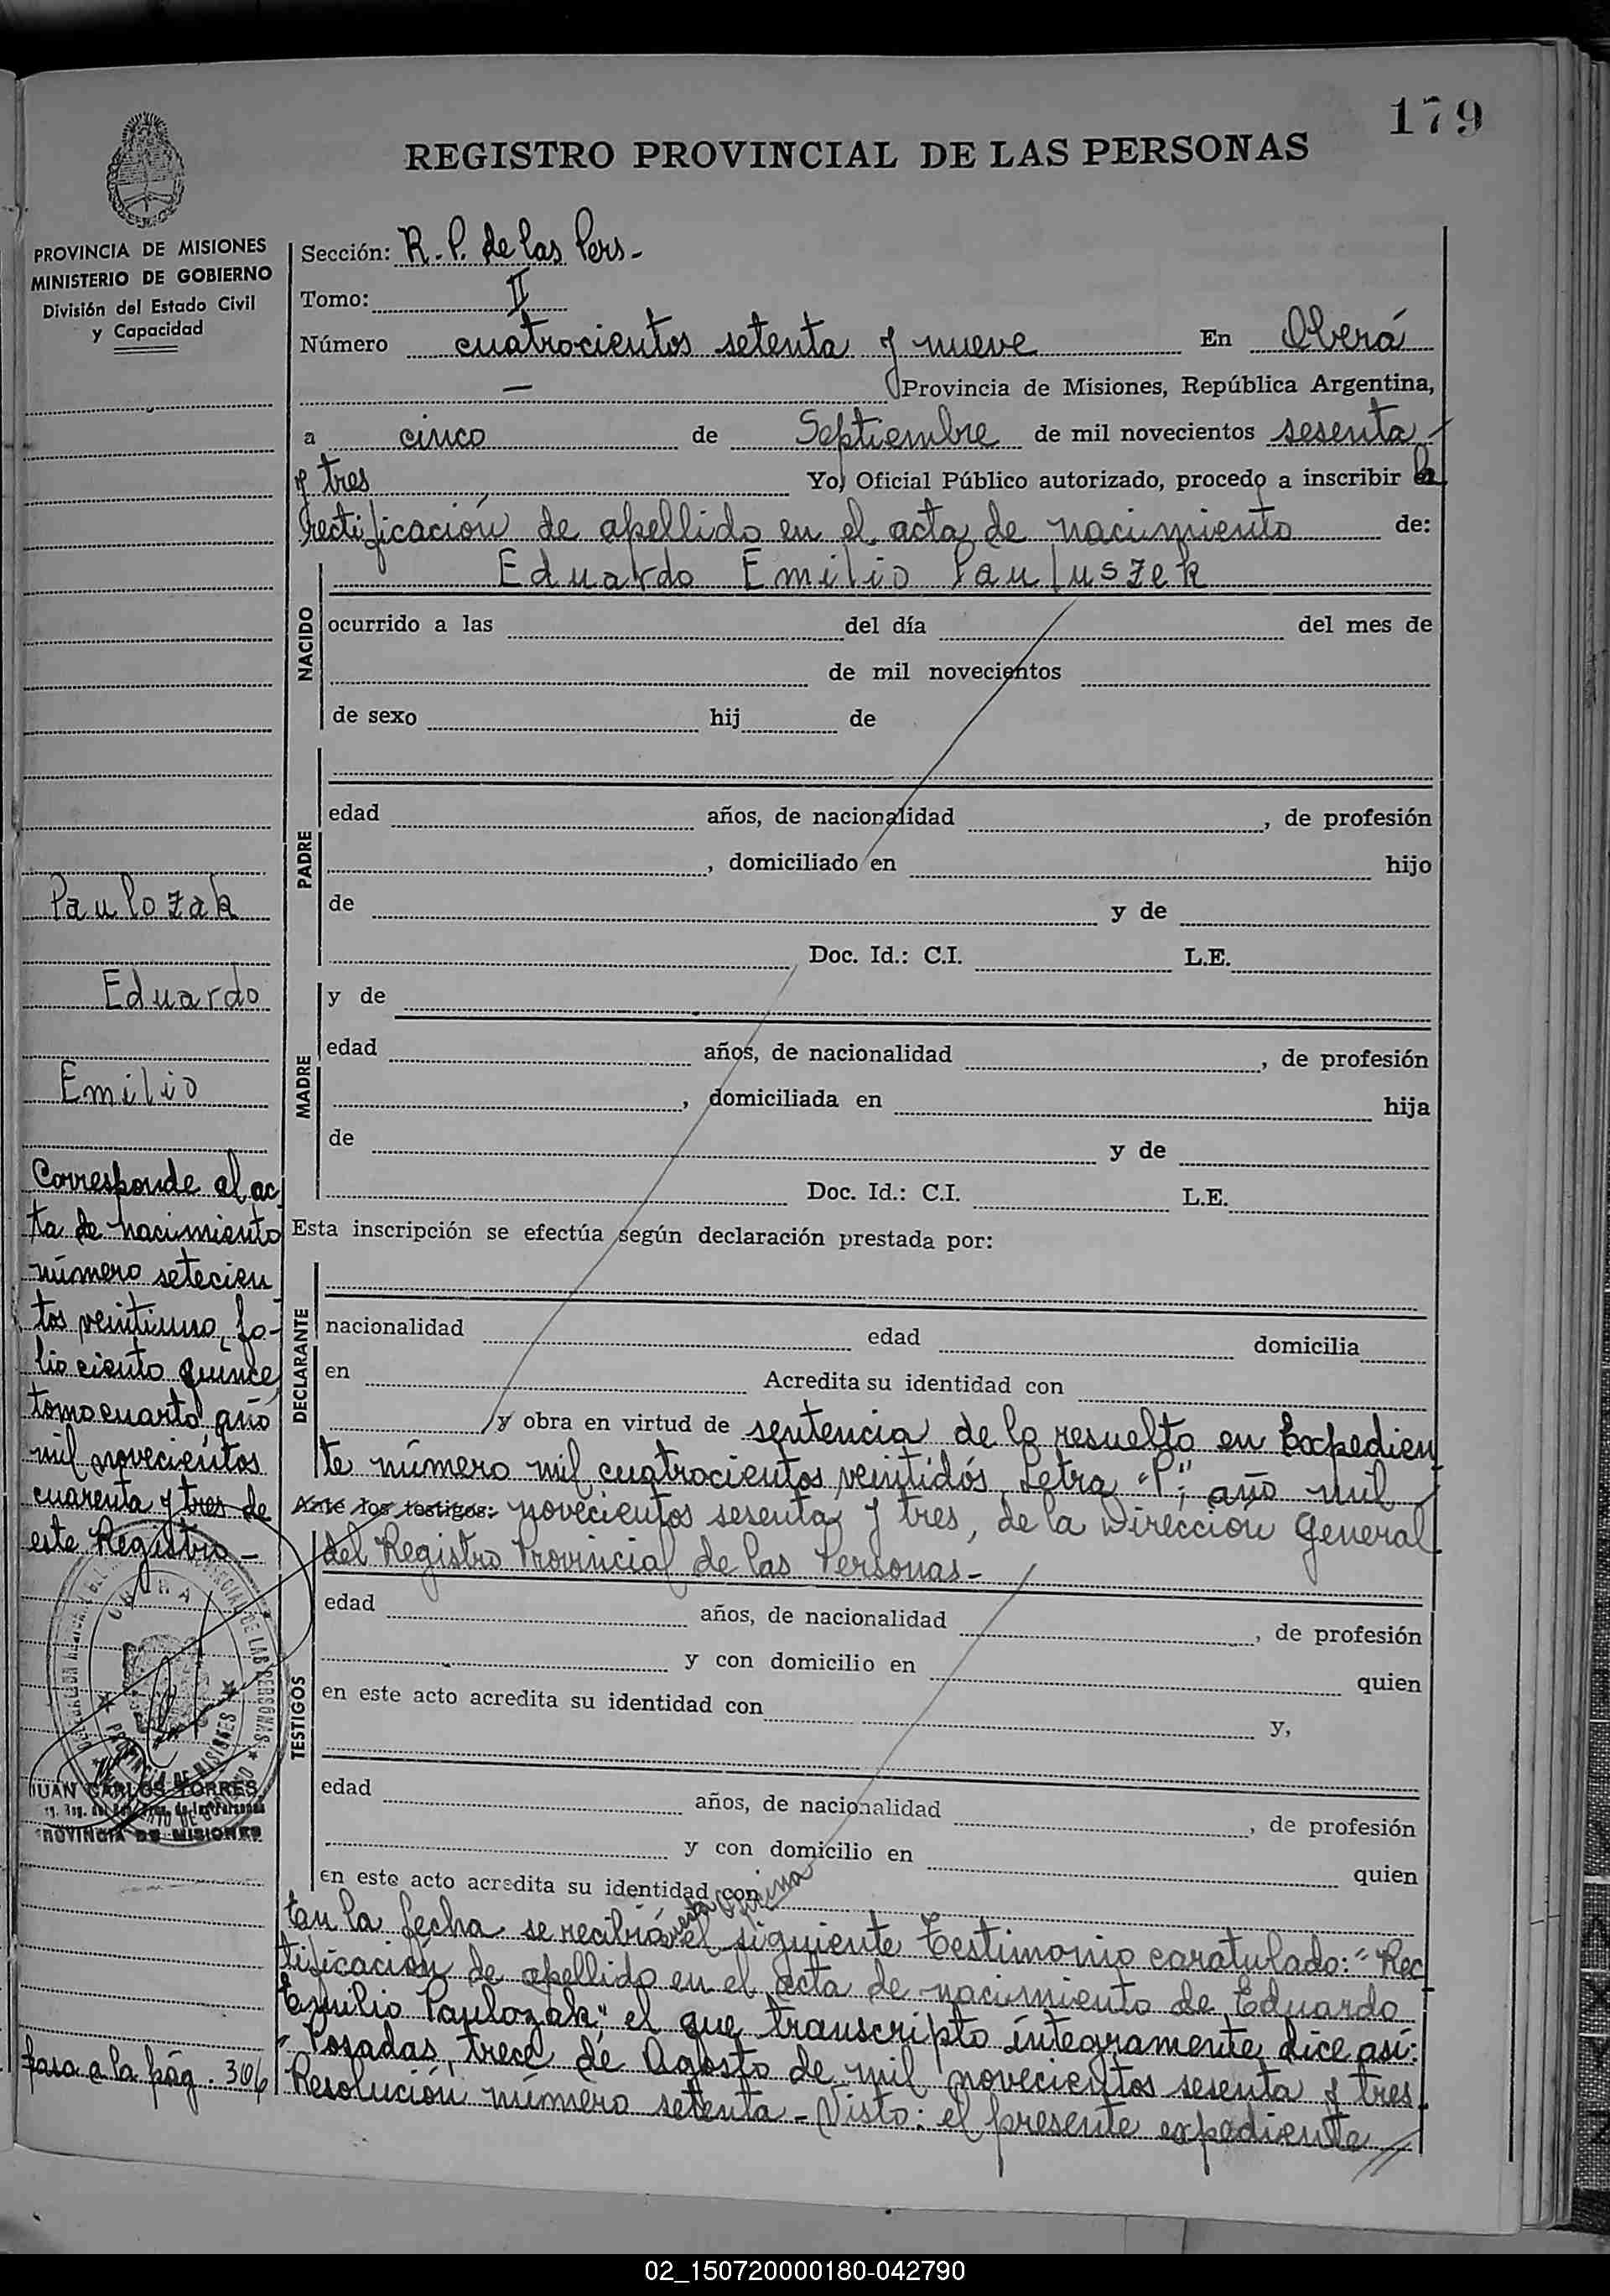 179
REGISTRO PROVINCIAL DE LAS PERSONAS
PROVINCIA DE MISIONES
MINISTERIO DE GOBIERNO
División del Estado Civil
y Capacidad
Sección: R. P. de las Pers-
Tomo: II
Número cuatrocientos setenta y nueve En Oberá
— Provincia de Misiones, República Argentina,
a cinco de Septiembre de mil novecientos sesenta
y tres Yo, Oficial Público autorizado, procedo a inscribir la
rectificación de apellido en el acta de nacimiento de:
Eduardo Emilio Pauluszek
NACIDO
ocurrido a las del día del mes de
de mil novecientos
de sexo hij de
PADRE
edad años, de nacionalidad , de profesión
, domiciliado en hijo
de y de
Doc. Id.: C.I. L.E.
MADRE
y de
edad años, de nacionalidad , de profesión
, domiciliada en hija
de y de
Doc. Id.: C.I. L.E.
Esta inscripción se efectúa según declaración prestada por:
DECLARANTE
nacionalidad edad domicilia
en Acredita su identidad con
y obra en virtud de sentencia de lo resuelto en Expedien
te número mil cuatrocientos veintidós Letra "P"; año mil
Ante los testigos: novecientos sesenta y tres, de la Dirección General
del Registro Provincial de las Personas-
TESTIGOS
edad años, de nacionalidad , de profesión
y con domicilio en quien
en este acto acredita su identidad con y,
edad años, de nacionalidad , de profesión
y con domicilio en quien
en este acto acredita su identidad con
esta oficina
En la fecha se recibió el siguiente testimonio caratulado: "Rec
tificación de apellido en el acta de nacimiento de Eduardo
Emilio Paulozak" el que transcripto íntegramente dice así:
"Posadas, trece de Agosto de mil novecientos sesenta y tres.
Resolución número setenta - Visto: el presente expediente
Paulozak
Eduardo
Emilio
Corresponde al ac
ta de nacimiento
número setecien
tos veintiuno, fo-
lio ciento quince
tomo cuarto, año
mil novecientos
cuarenta y tres de
este Registro-
OBERA
PROVINCIA DE MISIONES
JUAN CARLOS TORRES
PROVINCIA DE MISIONES
pasa a la pág. 306
02_150720000180-042790